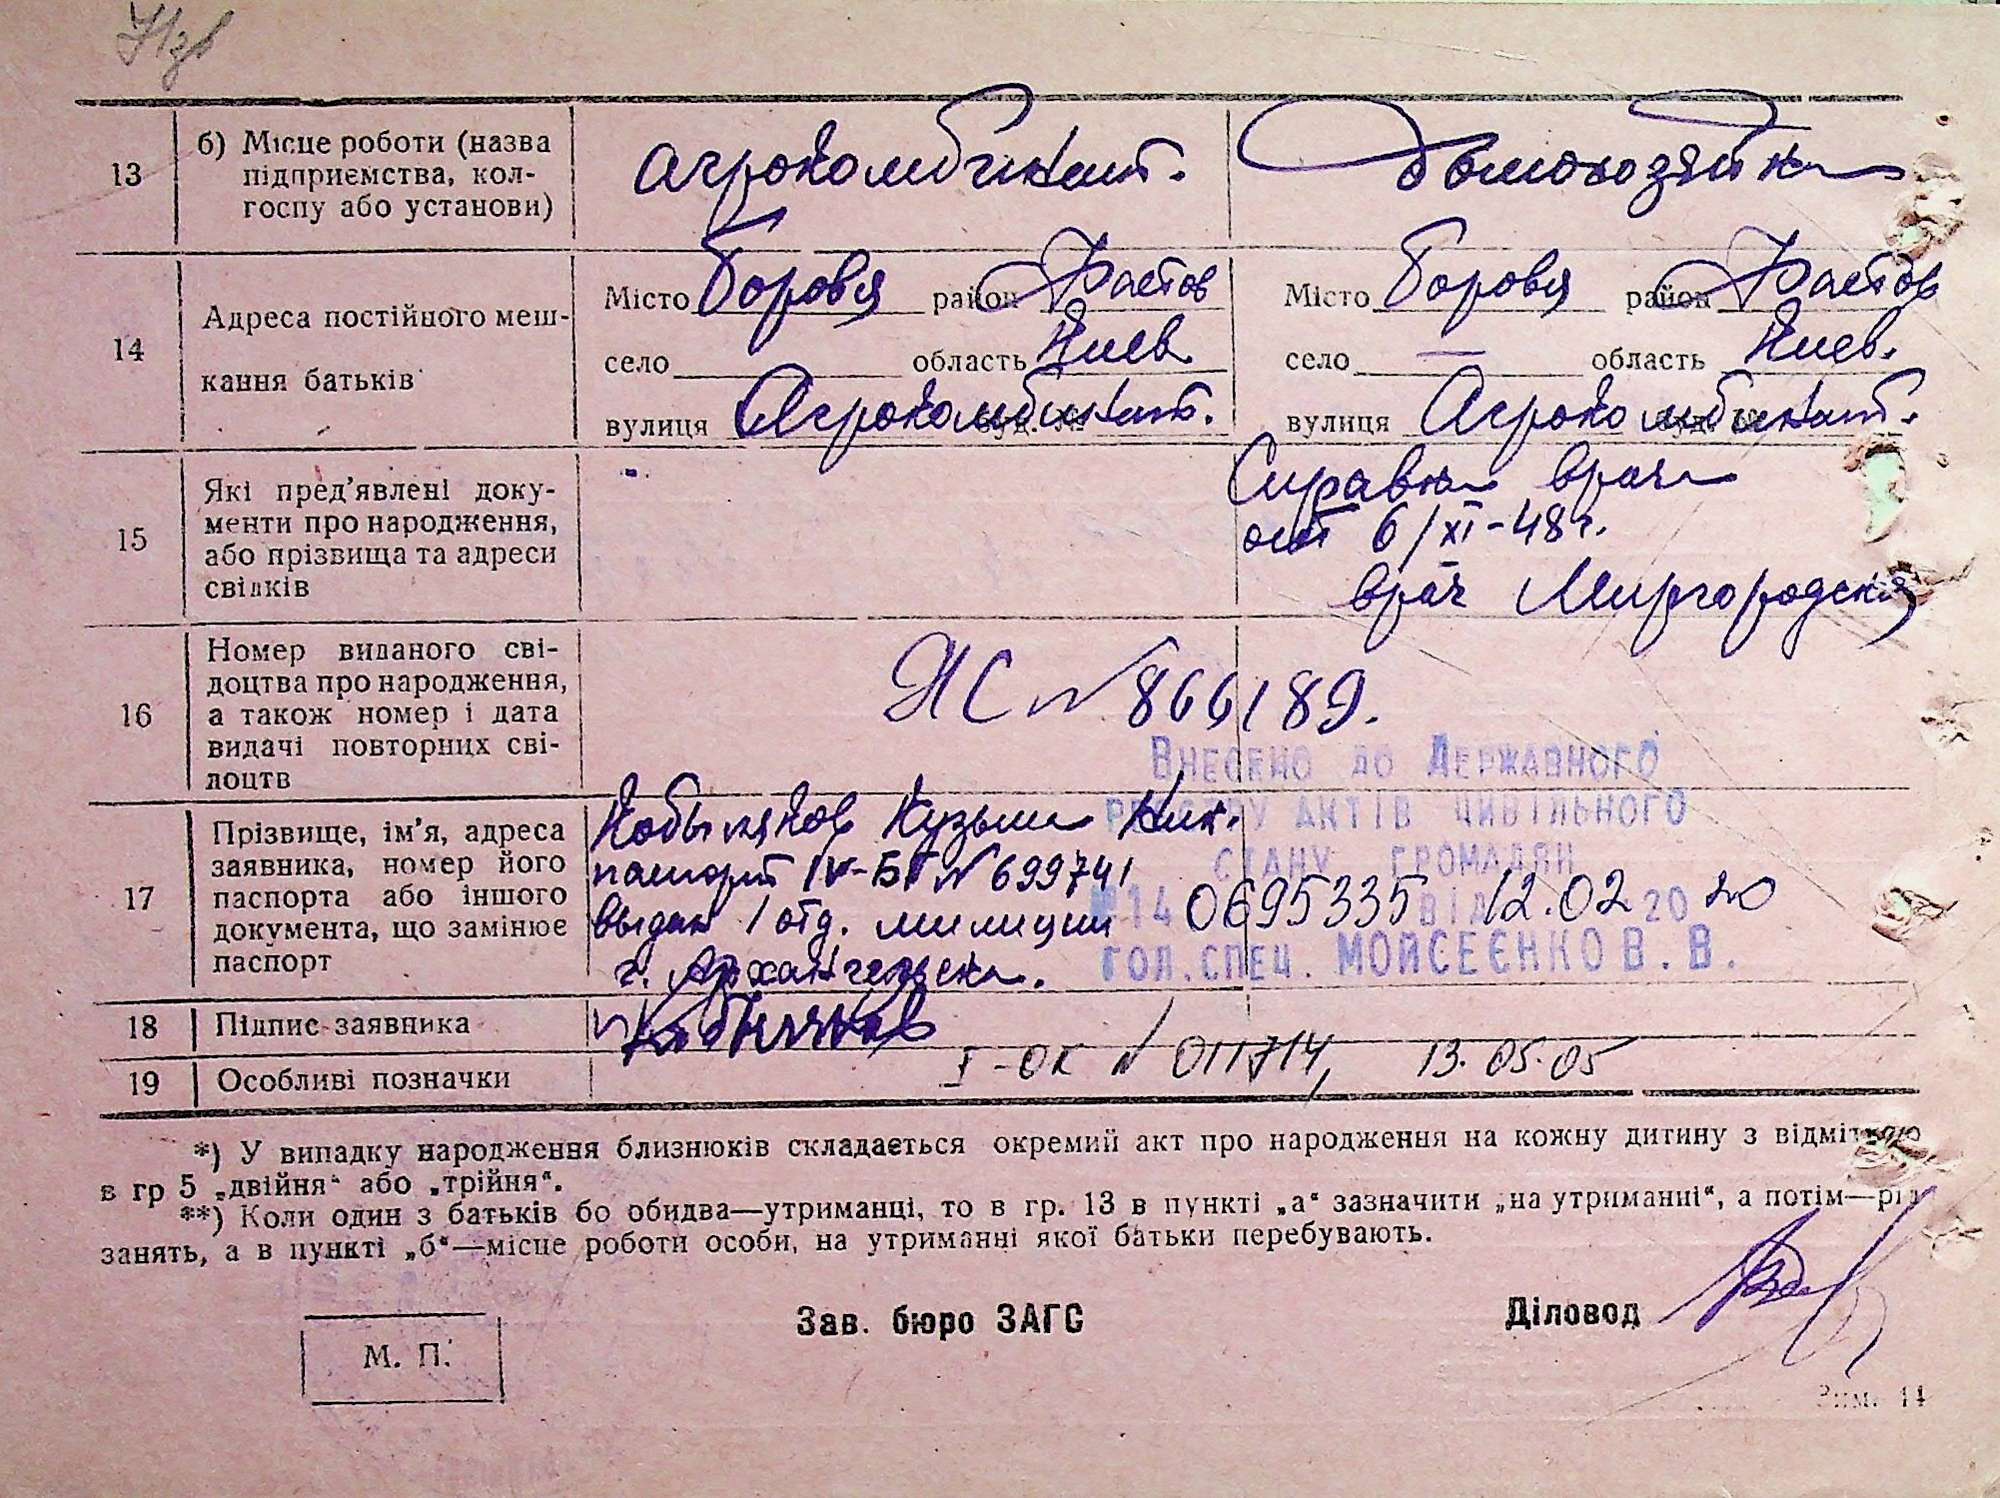 13
б) Місце роботи (назва
підприємства, кол-
госпу або установи)
Агрокомбинат.
домохозяйка
14
Адреса постійного меш-
кання батьків
Місто Боровя район Фастов
село область Киев
вулиця Агрокомбинат.
Місто Боровя район Фастов
село — область Киев.
вулиця Агрокомбинат.
15
Які пред’явлені доку-
менти про народження,
або прізвища та адреси
свідків
Справка врача
от 6/XI-48г.
врач Миргородская
16
Номер виданого сві-
доцтва про народження,
а також номер і дата
видачі повторних сві-
доцтв
ЯС № 866189.
Внесено до Державного
реєстру актів цивільного
стану громадян
№ 14 0695335 від 12.02 2020
Гол. спец. Мойсеєнко В. В.
17
Прізвище, ім’я, адреса
заявника, номер його
паспорта або іншого
документа, що замінює
паспорт
Кобыляков Кузьма Ник.
паспорт IV-БГ № 699741
выдан 1 отд. милиции
г. Архангельска.
18
Підпис заявника
Кобыляков
19
Особливі позначки
I-ОК № 011714, 13.05.05
*) У випадку народження близнюків складається окремий акт про народження на кожну дитину з відміткою
в гр 5 „двійня“ або „трійня“.
**) Коли один з батьків бо обидва—утриманці, то в гр. 13 в пункті „а“ зазначити „на утриманні“, а потім—рід
занять, а в пункті „б“—місце роботи особи, на утриманні якої батьки перебувають.
Зав. бюро ЗАГС
Діловод
М. П.
Зим. 14